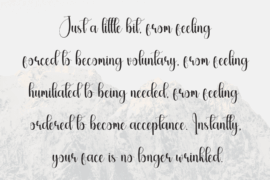 Just a little bit, from feeling
forced to becoming voluntary, from feeling
humiliated to being needed, from feeling
ordered to become acceptance. Instantly,
your face is no longer wrinkled.